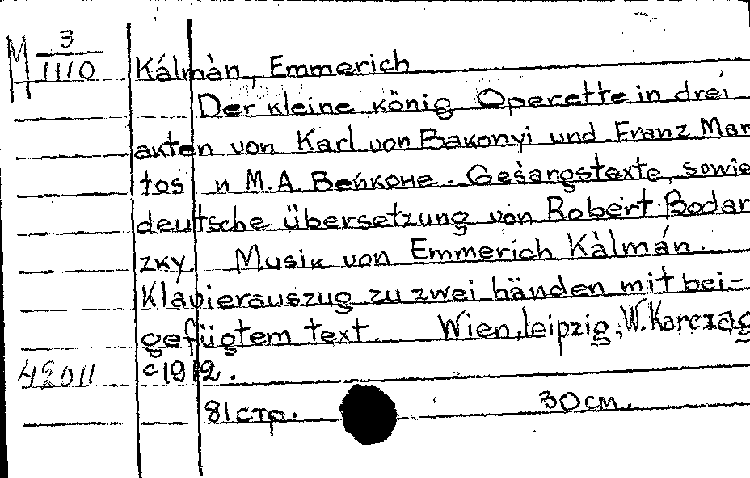 M 3
1110 Kálmàn, Emmerich
Der kleine könig Operette in drei
akten von Karl von Bakonyi und Franz Mar
tos и M.A. Веńkоне. Gesangstexte, sowie
deutsche übersetzung von Robert Bodar
zky. Musik von Emmerich Kàlmán.
Klavierauszug zu zwei händen mit bei-
gefügtem text. Wien, leipzig, W. Karczag
42011 c1912.
81 стр. 30 см.